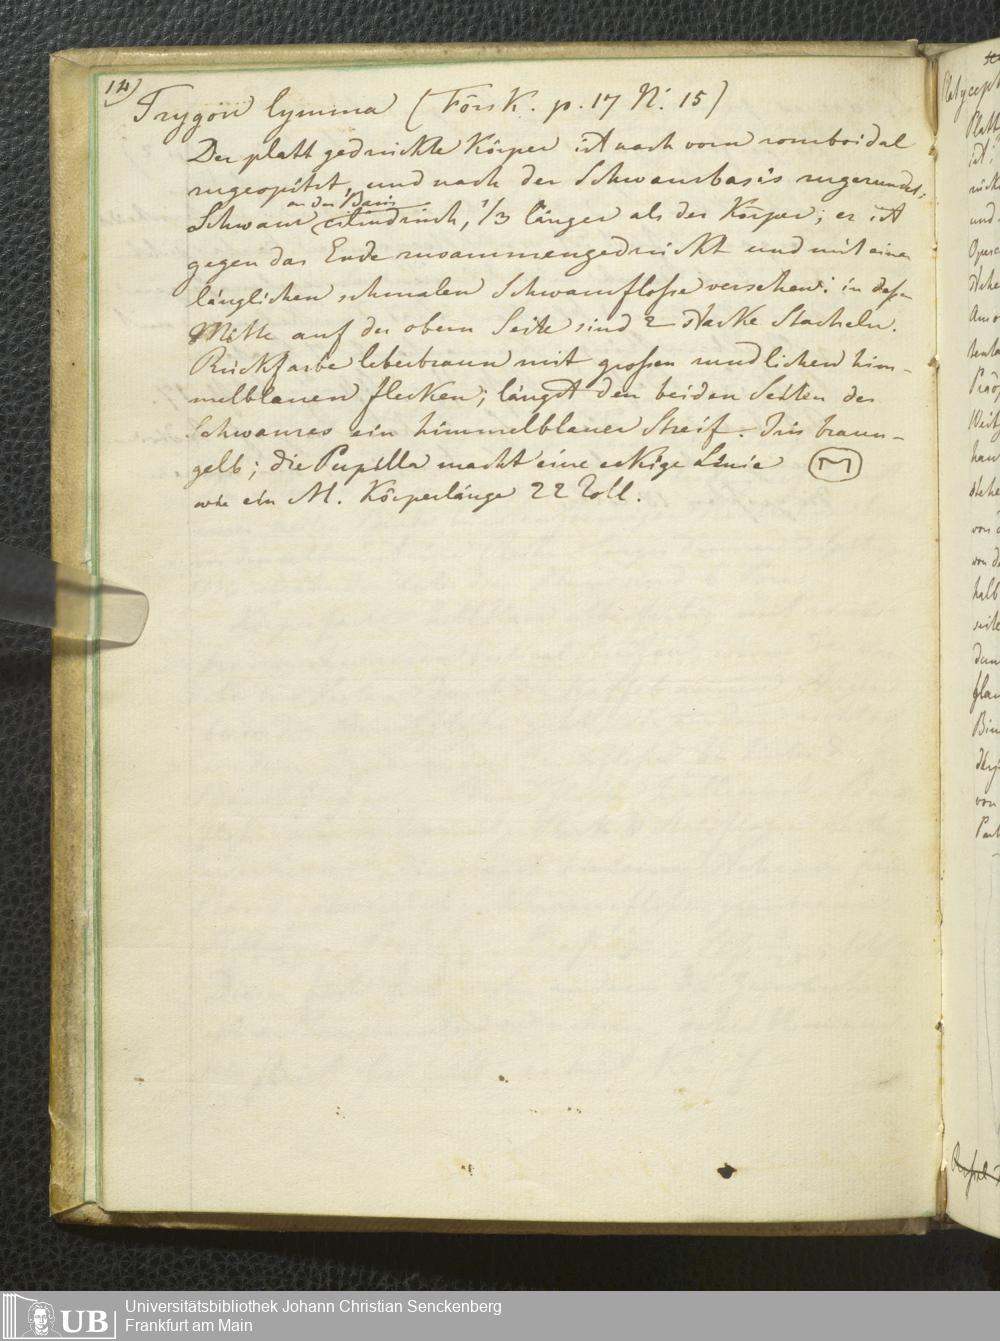 14)
Trygon lymma (Forsk. p. 17 N. 15)
Der platt gedruckte Körper ist nach vorn romboidal
zugespitzt, und nach der Schwanzbasis zugerundet;
an der Basis
Schwanz cilindrisch, 1/3 länger als der Körper; er ist
gegen das Ende zusammengedrückt und mit einer
länglichen schmalen Schwanzflosse versehen; in dessen
Mitte auf der obern Seite sind 2 starke Stacheln.
Rückfarbe leberbraun mit grossen rundlichen him-
melblauen flecken; längst den beiden Seiten des
Schwanzes ein himmelblauer Streif. Iris braun-
gelb; die Pupilla macht eine eckige Linie M
wie ein M. Körperlänge 22 Zoll.
Universitätsbibliothek Johann Christian Senckenberg
Frankfurt am Main
UB